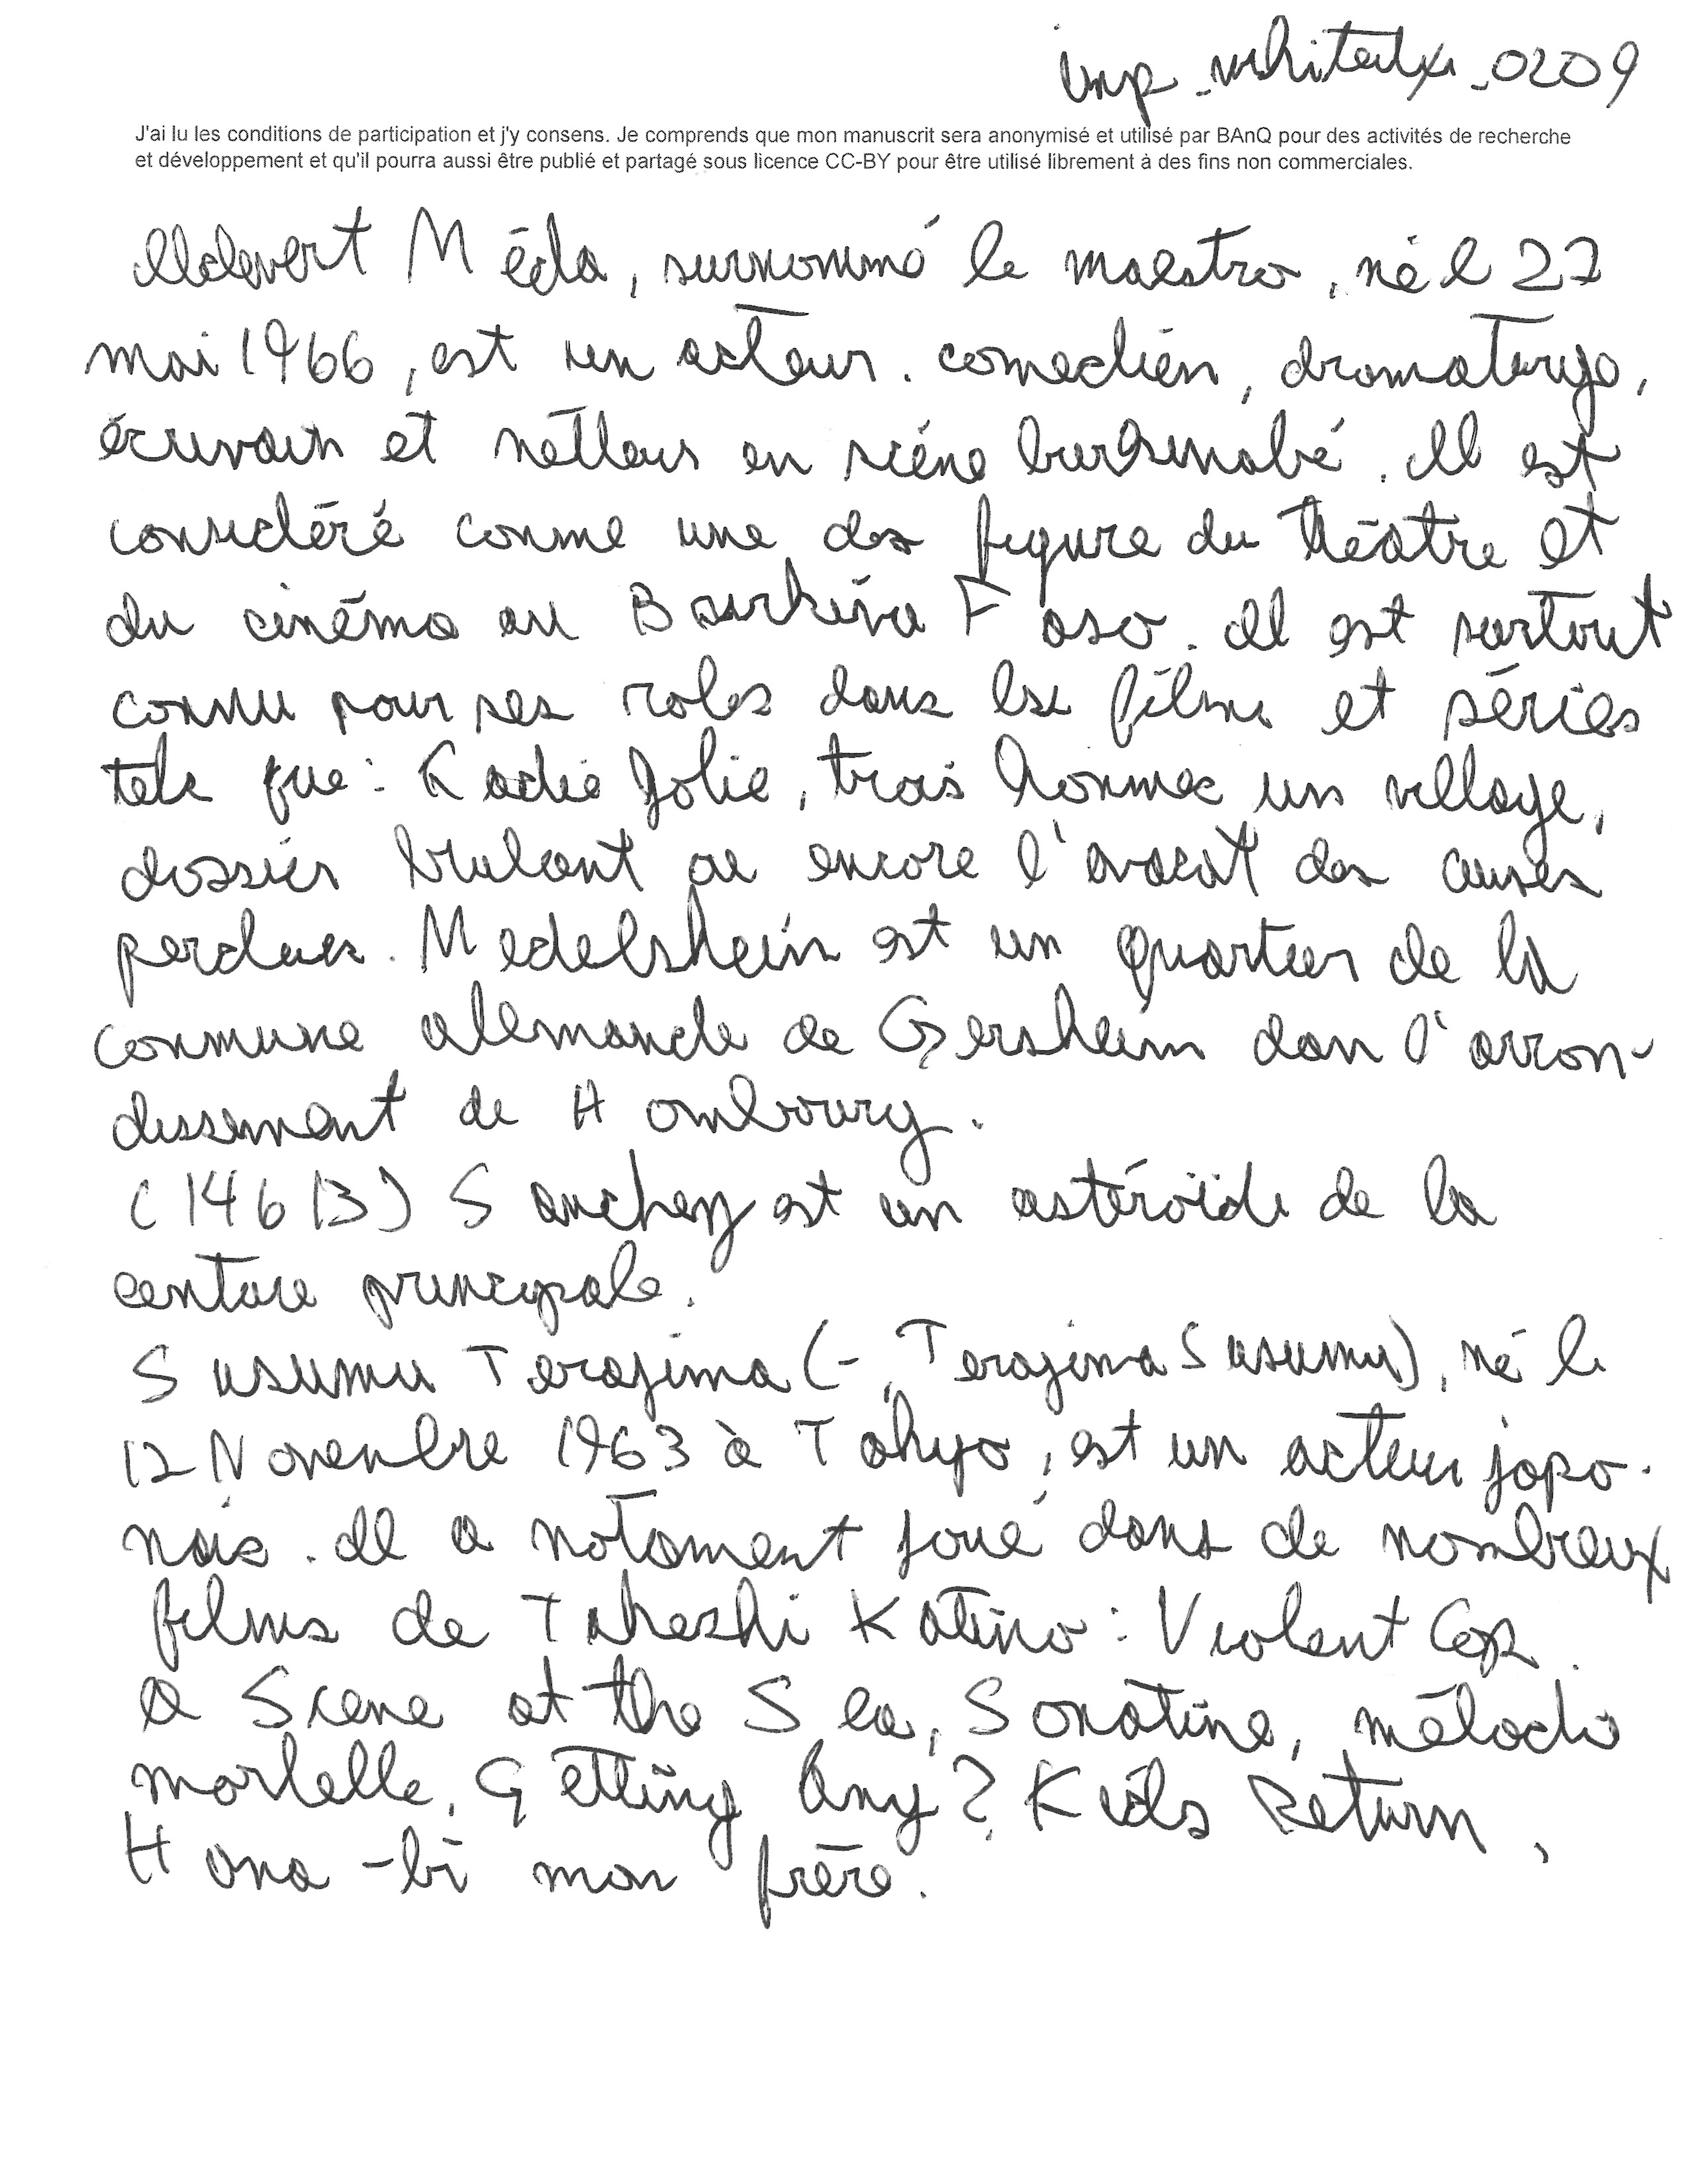 imp_whitetxtx_0209
J'ai lu les conditions de participation et j'y consens. Je comprends que mon manuscrit sera anonymisé et utilisé par BAnQ pour des activités de recherche
et développement et qu'il pourra aussi être publié et partagé sous licence CC-BY pour être utilisé librement à des fins non commerciales.
Ildevert Méda, surnommé le maestro, né l 27
mai 1966, est un acteur. comedién, dramaturge,
écrivain et metteur en scène burkinabé. Il est
considéré comme une des figure du théâtre et
du cinéma au Burkina Faso. Il est surtout
connu pour ses roles dans les films et séries
tels que: Kadie Jolie, trois hommes un village,
dossier brulant ou encore l'avocat des causes
perdues. Medelsheim est un quartier de la
commune allemande de Gersheim dans l'arron-
dissement de Hombourg.
(14613) Sanchez est un astéroïde de la
centure principale.
Susumu Terajima (-, Terajima Susumu), né le
12 Novembre 1963 à Tokyo, est un acteur japo-
nais. Il a notament joué dans de nombreux
films de Takeshi Katino: Violent Cop,
a Scene at the Sea, Sonatine, mélodie
mortelle, Getting Any?, Kids Return,
Hana-bi mon frère.